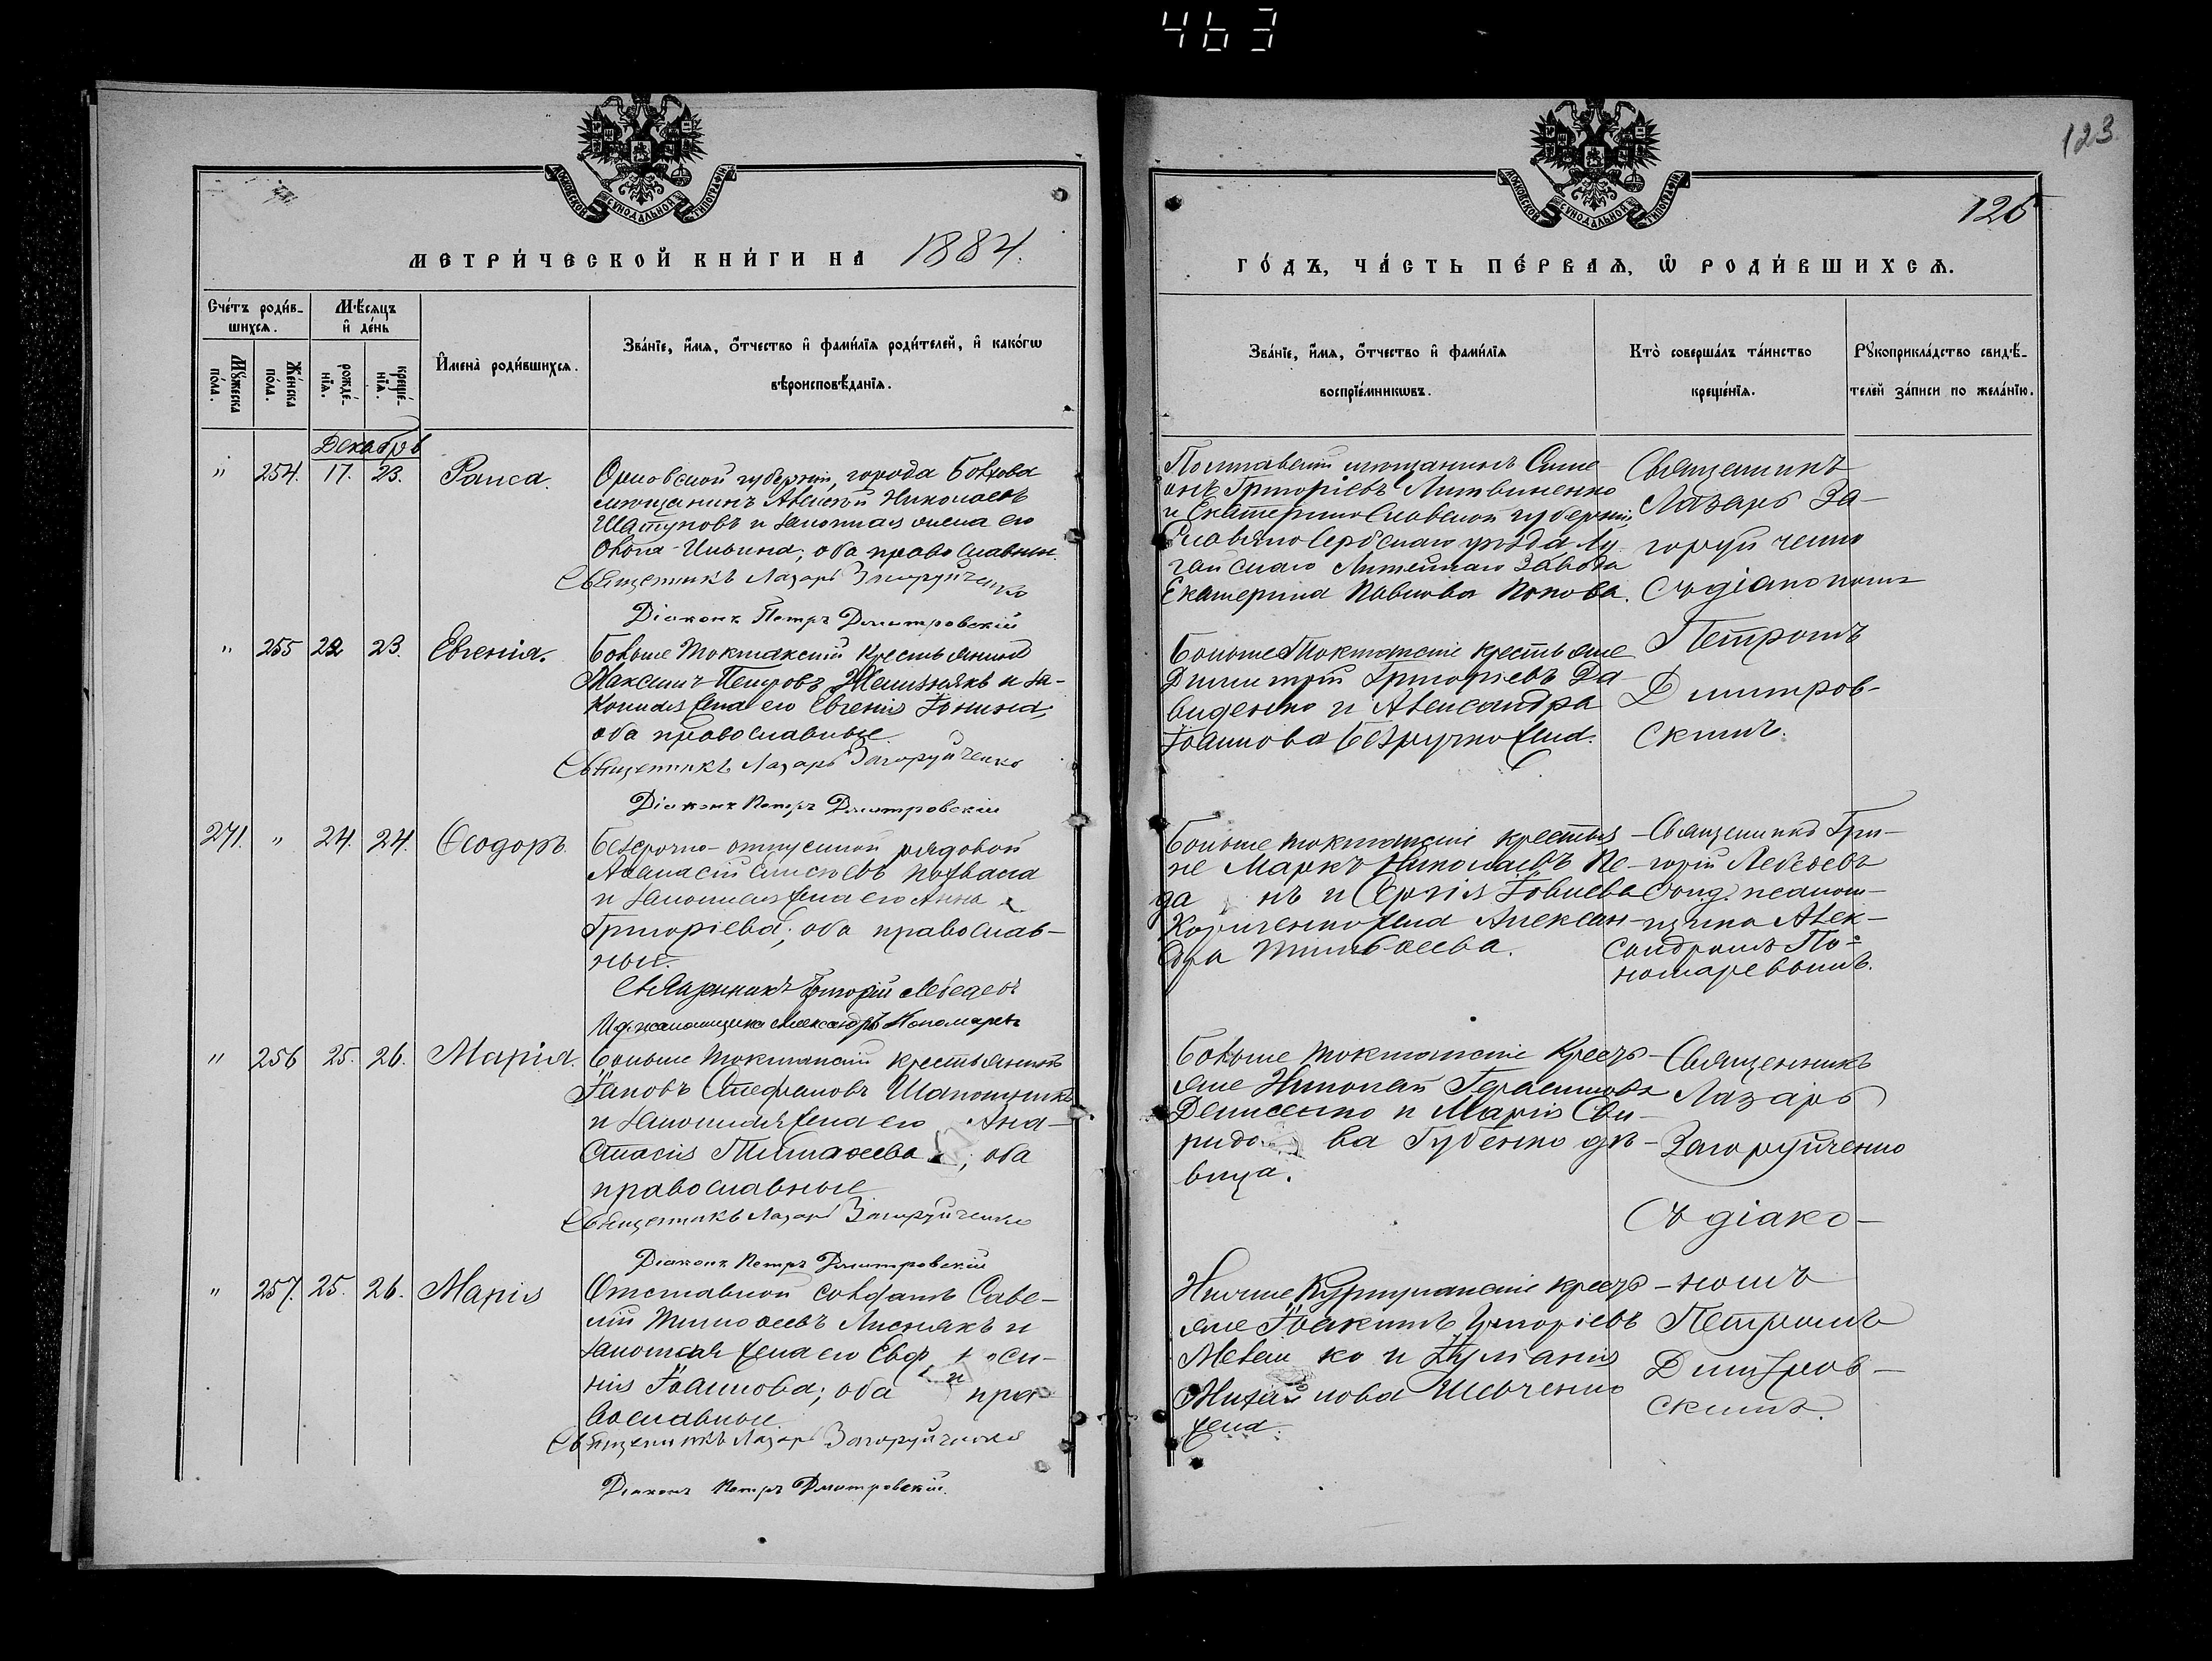 463
123.
125
МОСКОВСКОЙ СѴНОДАЛЬНОЙ ТИПОГРАФІИ
МОСКОВСКОЙ СѴНОДАЛЬНОЙ ТИПОГРАФІИ
МЕТРИ́ЧЕСКОЙ КНИ́ГИ НА 1884.
ГО́ДЪ, ЧА́СТЬ ПЕ́РВАѦ, Ѡ РОДИ́ВШИХСѦ.
Сче́тъ роди́в-
шихсѧ.
Мꙋ́жеска по́ла.
Же́нска по́ла.
Мѣ́сяцъ
и де́нь
рожде́-
нїѧ.
креще́-
нїѧ.
Имена̀ роди́вшихсѧ.
Зва́нїе, и́мѧ, о́тчество и фами́лїѧ роди́телей, и како́гѡ
вѣроисповѣ́данїѧ.
Зва́нїе, и́мѧ, о́тчество и фами́лїѧ
воспрїе́мникѡвъ.
Кто̀ соверша́лъ та́инство
креще́нїѧ.
Рꙋкоприкла́дство свидѣ́-
телей за́писи по жела́нїю.
Декабрь
" 254. 17. 23. Раиса.
Орловской губерніи, города Болхова
мѣщанинъ Алексѣй Николаевъ
Шатуновъ и законная жена его
Ильина; оба православны.
Священникъ Лазарь Загоруйченко
Діаконъ Петръ Дмитровскій
Полтавскій мѣщанинъ Симе
онъ Григоріевъ Литвиненко
и Екатеринославской губерніи,
Славяносербскаго уѣзда Лу
ганскаго Литейнаго завода
Екатерина Павлова Попова.
Священникъ
Лазарь За-
горуйченко
съ діакономъ
Петромъ
Дмитров-
скимъ.
" 255 22 23. Евгенія.
Больше Токмакскій крестьянинъ
Максимъ Петровъ Желизнякъ и за-
конная жена его Евгенія
оба православные.
Священникъ Лазарь Загоруйченко
Діаконъ Петръ Дмитровскій
Больше Токмакскіе крестьяне
Димитрій Григоріевъ Да-
виденко и Александра
Іоаннова Безручко жена.
271. " 24. 24. Ѳеодоръ.
Безсрочно-отпускной рядовой
Аѳанасій
и законная жена его Анна
Григоріева; оба православ-
ные.
Священникъ Григорій Лебедевъ
И. д. псаломщика Александръ Пономаревъ
Больше Токмакскіе крестья
не Маркъ Николаевъ
и
жена Алексан-
дра Тимоѳеева.
Священникъ Гри-
горій Лебедевъ
псалом-
щика Алек-
сандромъ По-
номаревымъ.
" 256 25. 26. Марія.
Больше Токмакскій крестьянинъ
Іаковъ Стефановъ Шапошникъ
и законная жена его Ана-
стасія Тимоѳеева; оба
православные
Священникъ Лазарь Загоруйченко
Діаконъ Петръ Дмитровскій
Больше Токмакскіе крестья-
не Николай Герасимовъ
Денисенко и Марія Спи-
ридонова Губенко дѣ-
вица.
Священникъ
Лазарь
Загоруйченко
съ діако-
номъ
Петромъ
Дмитров-
скимъ.
" 257. 25. 26. Марія
Отставной солдатъ Саве-
лій Тимоѳеевъ Лиснякъ и
законная жена его Евфроси-
нія Іоаннова; оба пра
вославные.
Священникъ Лазарь Загоруйченко
Діаконъ Петръ Дмитровскій.
Нижне Куркулакскіе крестья-
не Іоакимъ Григоріевъ
и Іуліанія
Михайлова Шевченко
жена.